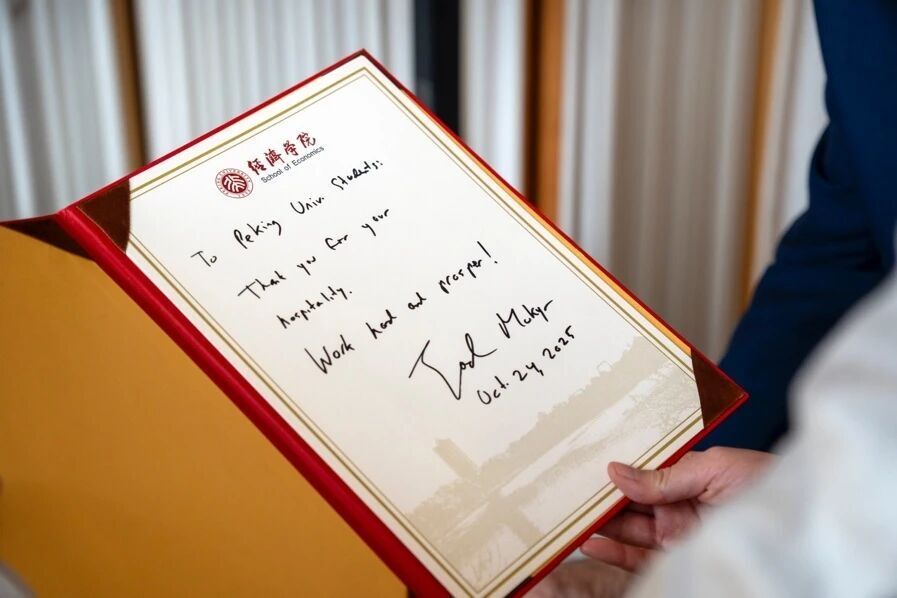 經濟學院
School of Economics
To Peking Univ. Students:
Thank you for your
hospitality.
Work hard and prosper!
Joel Mokyr
Oct. 24, 2025